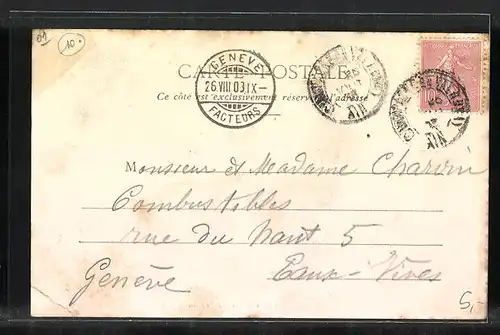 69
10.-
CARTE POSTALE
Ce côté est exclusivement réservé à l'adresse
GENÈVE
26.VIII.03.IX-
FACTEURS
Monsieur et Madame Charvin
Combustibles
rue du Mont 5
Genève Eaux-Vives
5,-